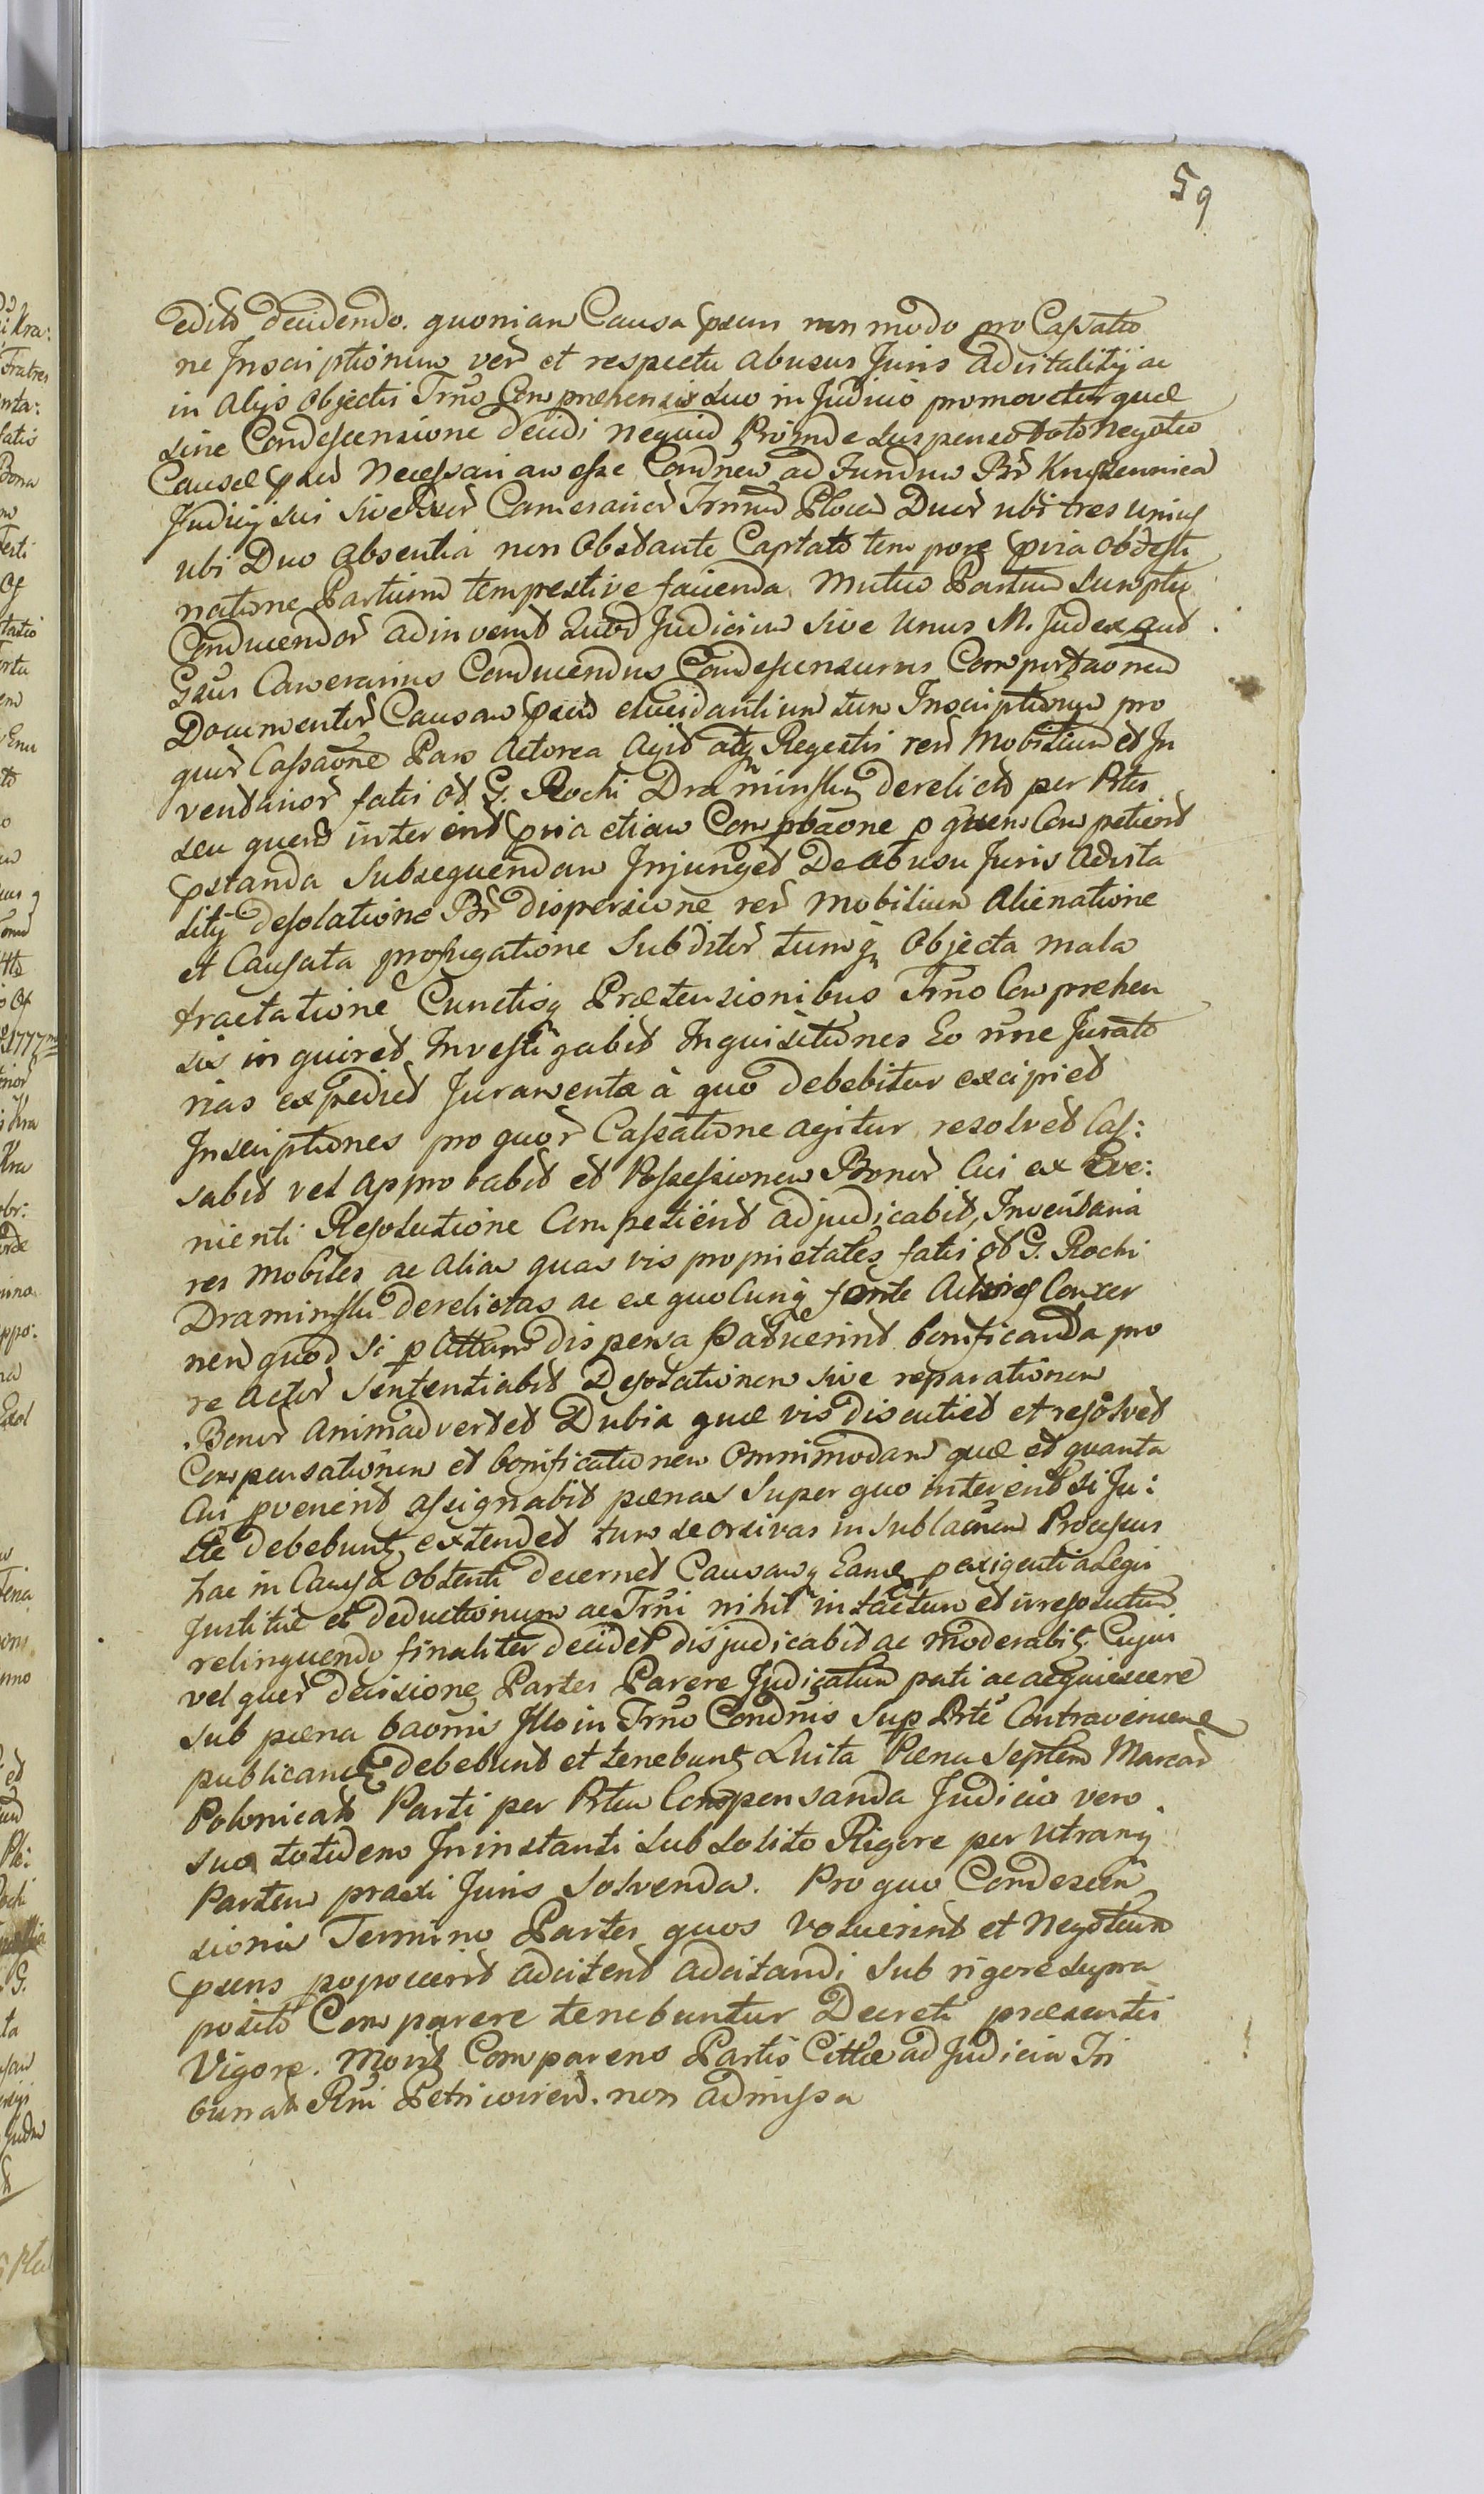 59
edito decidendo. quoniam Causa psens non modo pro Cassatio
ne Inscriptionum ver et respectu abusus Juris advitalitij ac
in alijs objectis Trno Comprehensis suo in Judicio promovetur quæ
sine Condescensione decidi nequid Proinde suspenso toto negotio
Causæ psen Necessariam esse Condnem ad Fundum Br
Judicij sui sive Camerarior Trnum Ploceñ Duor ubi tres unius
ubi Duo absentia non Obstante Captato tempore pvia obdesti
natione Partium tempestive facienda mutuo Partium sumptu
Conducendor adinvenit Quod Judicium sive Unus M. Judex aut
Gsus Camerarius Conducendus Condescensurus Comportaonem
Documentor Causam psen elucidantium tum Inscriptionum pro
quar Cassaone Pars Actorea Agit atq Regestri rerum Mobilium et In
ventarior fatis G. Rochi Draminski derelict per Ptes
seu quem intererit pvia etiam Comptaone p quem Competierit
pstanda Subsequendam Injunget De abusu Juris Advita
litij desolatione Br dispersione rer mobilium Alienatione
et Causata profugatione Subditor tumq objecta mala
tractatione Cunctisq Prætensionibus Trno Comprehen
sis inquiret Investigabit Inquisitiones Eo nne Jurato
rias expediet Juramenta à quo debebitur excipiet
Inscriptiones pro quar Cassatione agitur resolvet Cas:
sabit vel approbabit et Possessionem Bonor Cui ex Eve:
nienti Resolutione Competient adjudicabit, Inventaria
res mobiles ac alias quas vis proprietates fatis G. Rochi
Draminski derelictas ac ex quo Cunq fonte Actores Concer
nen quod si p dispersa patuerint bonificanda pro
re Actor Sententiabit Desolationem sive reparationem
Bonor animadvertet Dubia quæ vis discutiet et resolvet
Compensationem et bonificationem Omnimodam quæ et quanta
Cui pvenerit assignabit pœnas super quo intererit si Ju:
ste debebunt extendet tum seorsivas in sublaonem Processus
hac in Causa obtenti decernet Causamq Eamd p exigentia Legis
Justitiæ et deductionum ac Trni nihil intactum et irresolutum
relinquendo finaliter decidet disjudicabit ac moderabit. Cujus
vel quor decisione Partes Parere Judicatum pati ac acquiescere
sub pœna baonis Illo in Trno Condnis Sup Pte Contraveniene
publicandæ debebunt et tenebunt Luita Pœna Septem Marcar
Polonicali Parti per Ptem Compensanda Judicio vero
suo totidem Ininstanti sub solito Rigore per Utramq
Partem praxi Juris solvenda. Pro quo Condescen
sionis Termino Partes quos voluerint et Negotium
psens poposcerit adcitent adcitandi sub rigore supra
posito Comparere tenebuntur Decreti præsentis
Vigore. Mone Comparens Partis Cittæ ad Judicia Tri
bunal Rni Petricovien. non admissa